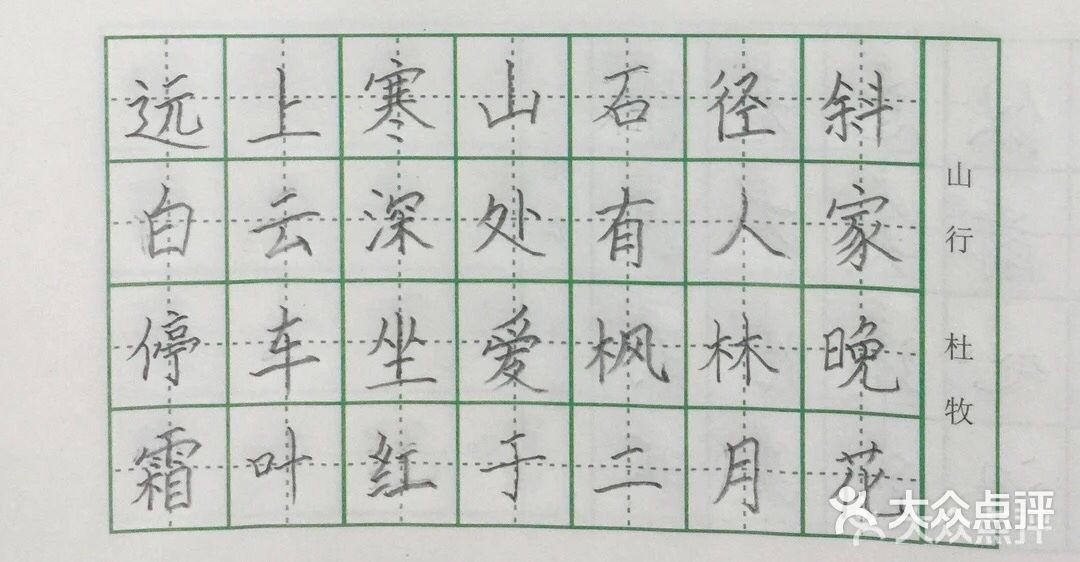 远上寒山石径斜
白云深处有人家
停车坐爱枫林晚
霜叶红于二月花
山行 杜牧
大众点评